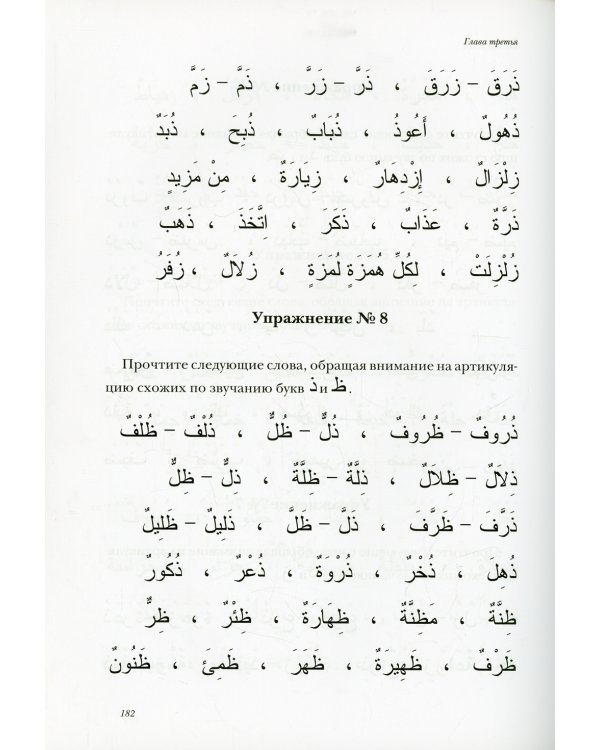 Глава третья
ذَرَقَ – زَرَقَ ، ذَرَّ – زَرَّ ، ذَمَّ – زَمَّ
ذُهُولٌ ، أَعُوذُ ، ذُبَابٌ ، ذُبِحَ ، ذُبَدٌ
زِلْزَالٌ ، إِزْدِهَار ، زِيَارَةٌ ، مِنْ مَزِيدٍ
ذَرَّةٌ ، عَذَابٌ ، ذَكَرَ ، اِتَّخَذَ ، ذَهَبٌ
زُلْزِلَتْ ، لِكُلِّ هُمَزَةٍ لُمَزَةٍ ، زُلَالٌ ، زُفَرُ
Упражнение № 8
Прочтите следующие слова, обращая внимание на артикуля-
цию схожих по звучанию букв ذ и ظ.
ذُرُوفٌ – ظُرُوفٌ ، ذُلٌّ – ظُلٌّ ، ذُلْفٌ – ظُلْفٌ
ذِلَالٌ – ظِلَالٌ ، ذِلَةٌ – ظِلَّةٌ ، ذِلٌّ – ظِلٌّ
ذَرَّفَ – ظَرَّفَ ، ذَلَّ – ظَلَّ ، ذَلِيلٌ – ظَلِيلٌ
ذُهِلَ ، ذُخْرٌ ، ذُرْوَةٌ ، ذُعْرٌ ، ذُكُورٌ
ظِنَةٌ ، مَظِنَّةٌ ، ظِهَارَةٌ ، ظِئْرٌ ، ظِرٌّ
ظَرْفٌ ، ظَهِيرَةٌ ، ظَهَرَ ، ظَمِئَ ، ظَنُونٌ
182